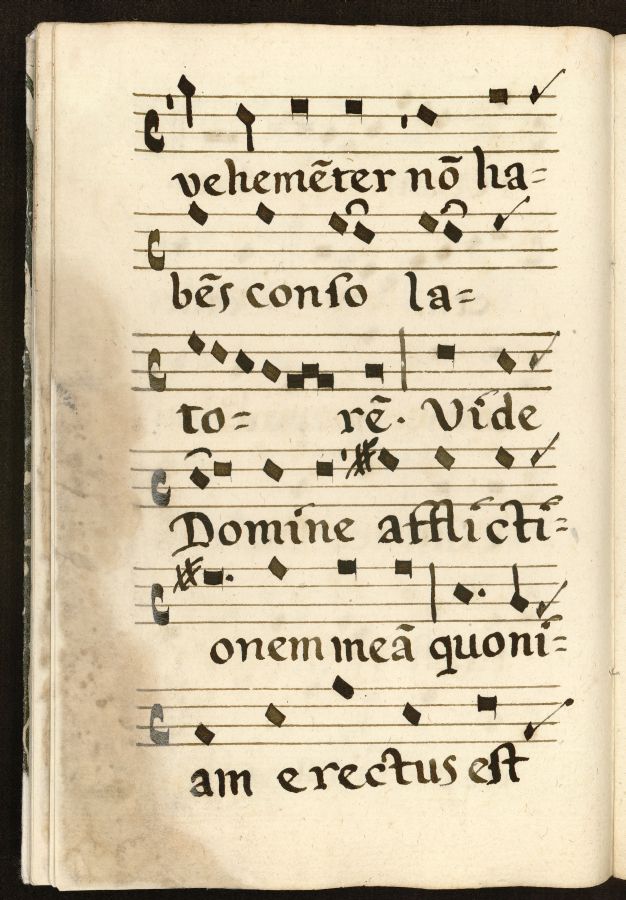 vehemẽter nõ ha=
bẽs conſo la=
to= rẽ. Vide
Domine afflicti=
onem meã quoni=
am erectus eſt